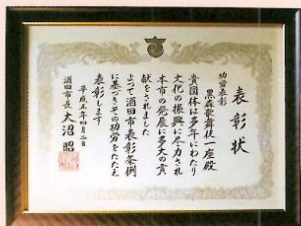 表彰状
功労表彰
黒森歌舞伎一座殿
貴団体は多年にわたり
文化の振興に尽力され
本市の発展に多大の貢
献をされました
よって酒田市表彰条例
に基づきその功労をたたえ
表彰します
平成五年四月二日
酒田市長 大沼昭